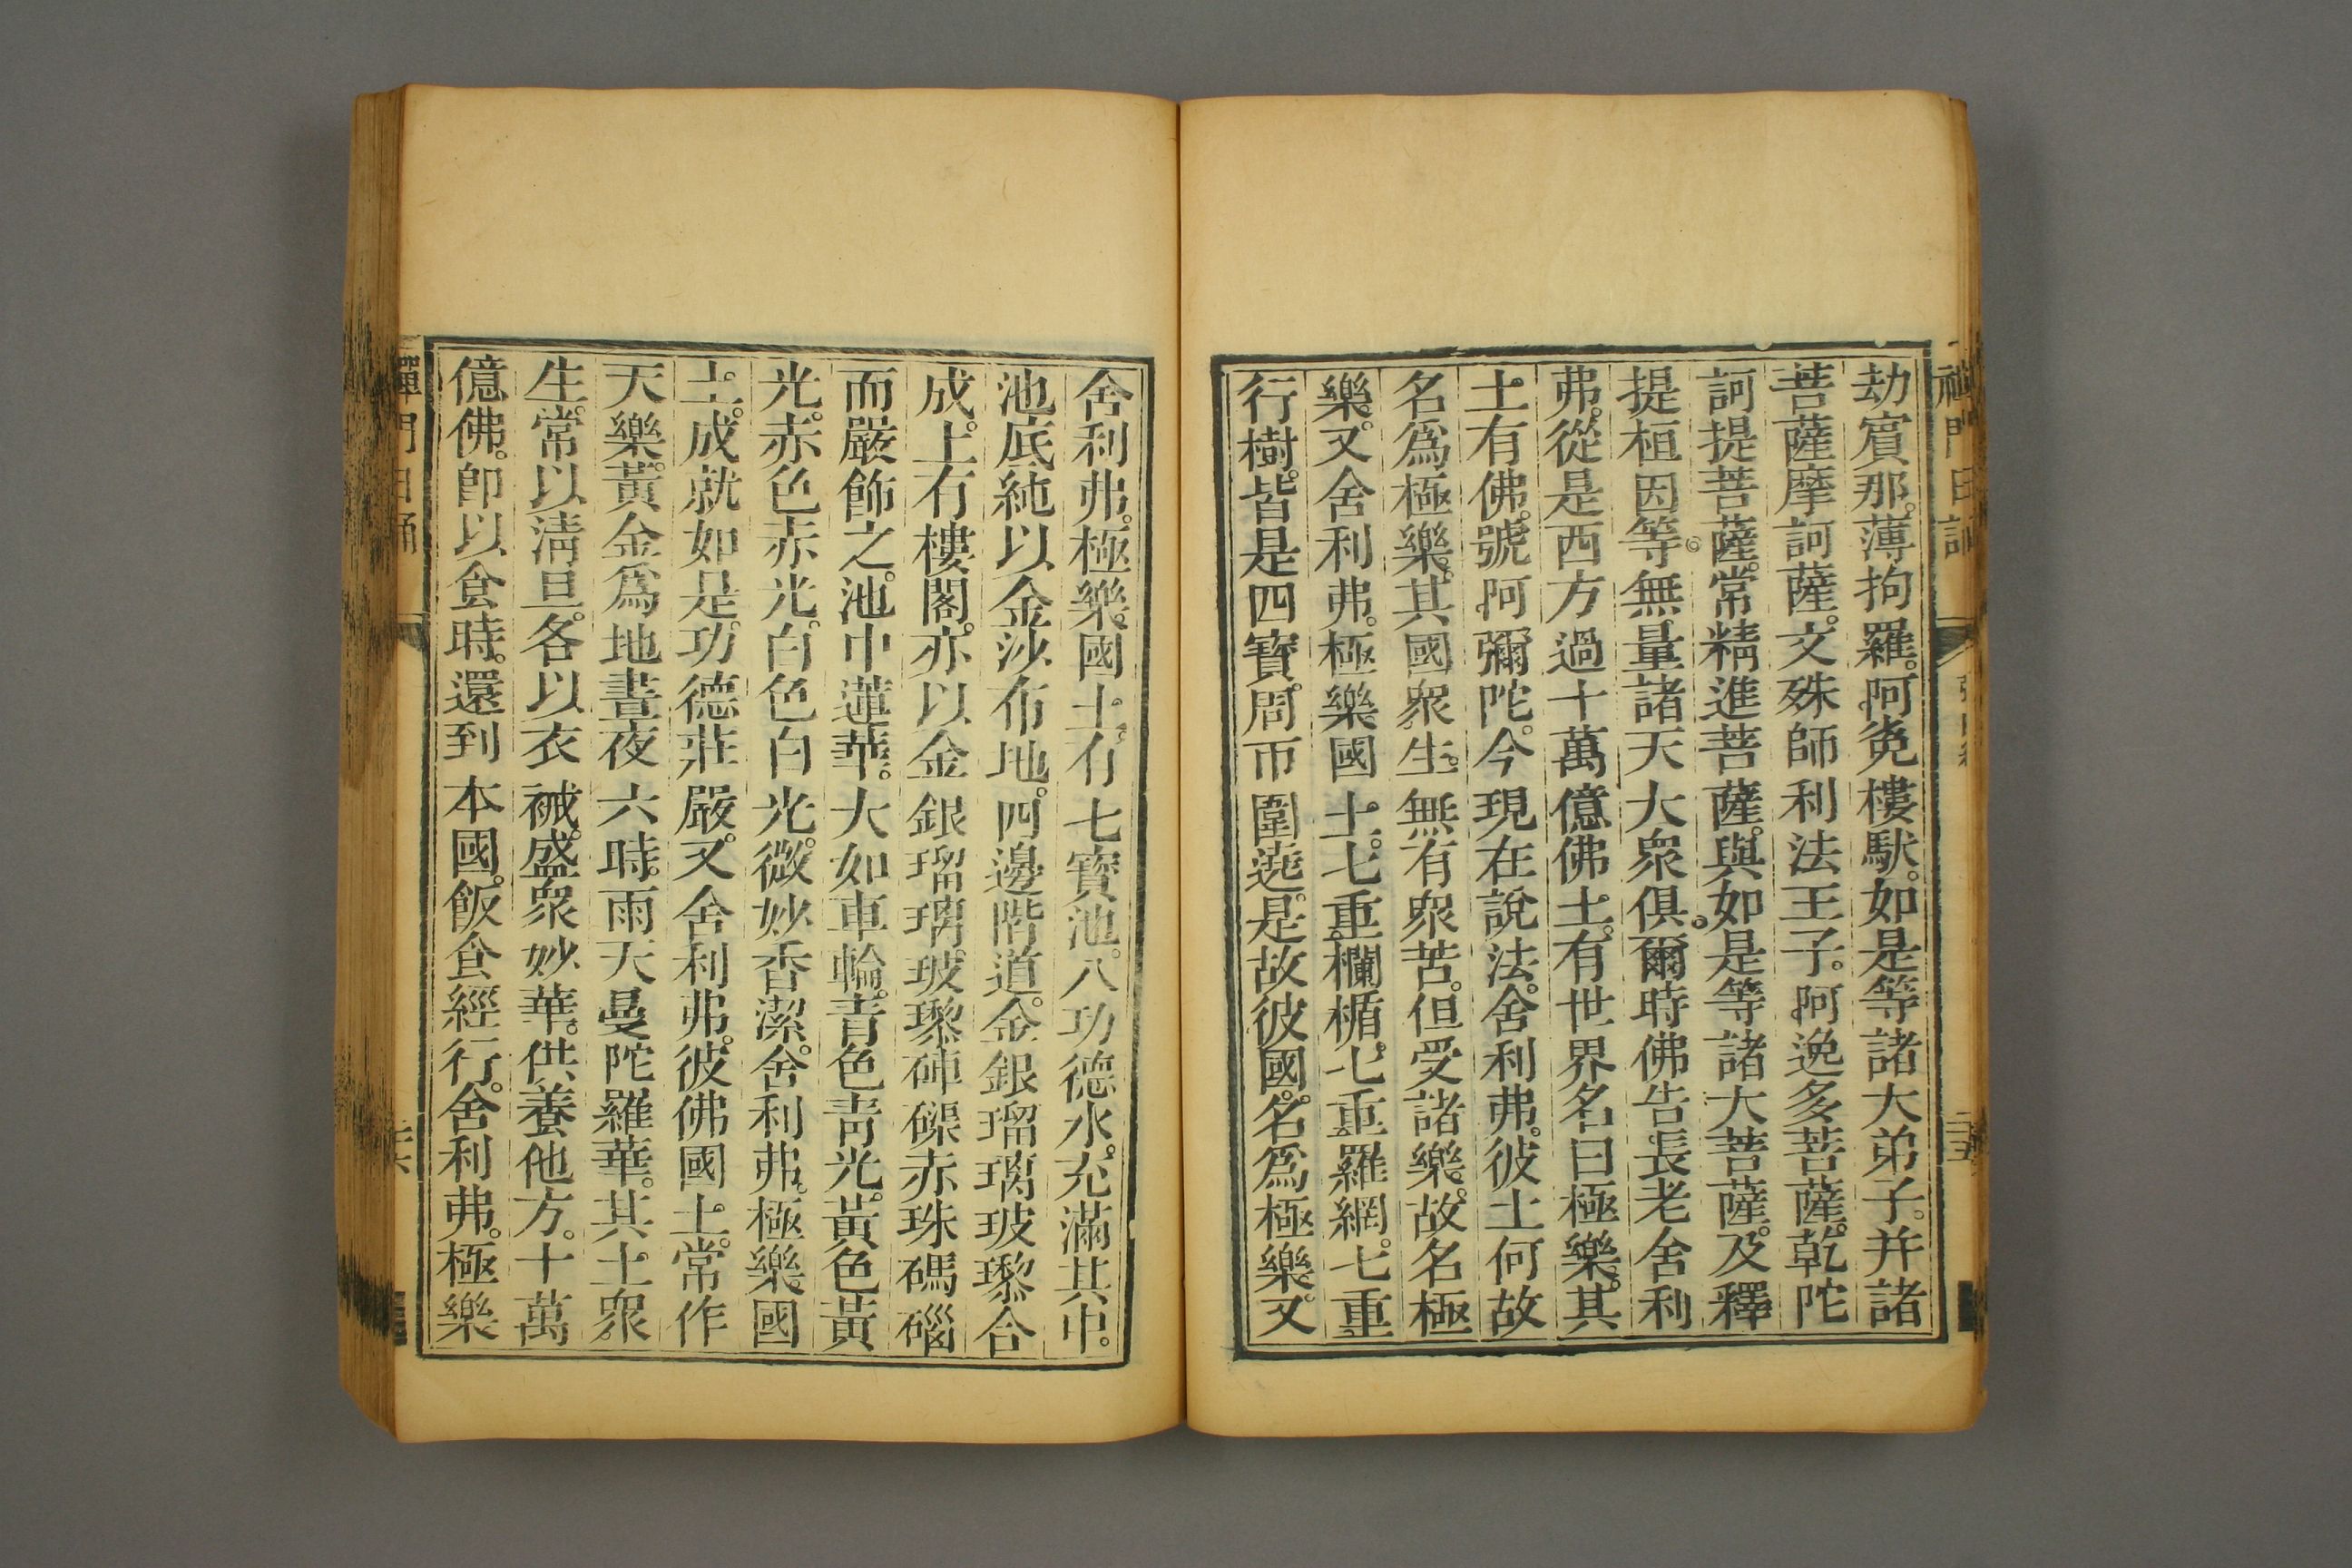 劫賓那。薄拘羅。阿㝹樓馱。如是等諸大弟子。并諸
菩薩摩訶薩。文殊師利法王子。阿逸多菩薩。乾陀
訶提菩薩。常精進菩薩。與如是等諸大菩薩。及釋
提桓因等。無量諸天大眾俱。爾時佛告長老舍利
弗。從是西方過十萬億佛土。有世界名曰極樂。其
土有佛。號阿彌陀。今現在說法。舍利弗。彼土何故
名為極樂。其國眾生。無有眾苦。但受諸樂。故名極
樂。又舍利弗。極樂國土。七重欄楯。七重羅網。七重
行樹。皆是四寶。周帀圍遶。是故彼國。名為極樂。又
舍利弗。極樂。國土。有七寶池。八功德水。充滿其中。
池底純以金沙布地。四邊階道。金銀瑠璃玻瓈合
成。上有樓閣。亦以金銀瑠璃。玻瓈硨磲赤珠碼碯
而嚴飾之。池中蓮華。大如車輪。青色青光。黃色黃
光。赤色赤光。白色白光。微妙香潔。舍利弗。極樂國
土。成就如是。功德莊嚴。又舍利弗。彼佛國土。常作
天樂。黃金為地晝夜六時。雨天曼陀羅華。其土眾
生。常以清旦。各以衣裓。盛眾妙華。供養他方。十萬
億佛。即以食時。還到本國。飯食經行。舍利弗。極樂
禪門日誦